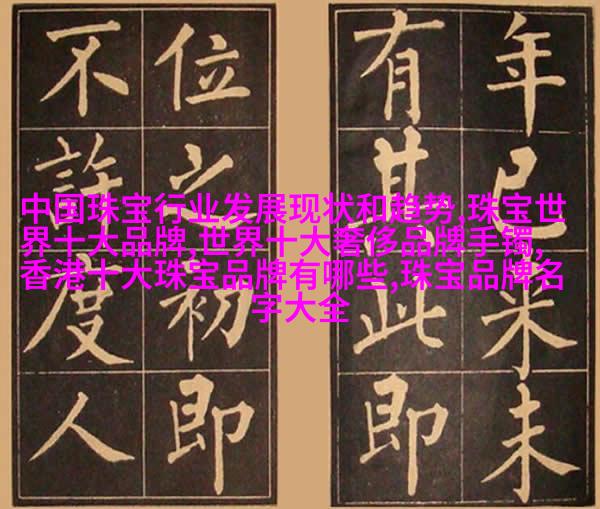 年已未
有其此即
位之初即
不許度人
中国珠宝行业发展现状和趋势,珠宝世
界十大品牌,世界十大奢侈品牌手镯,
香港十大珠宝品牌有哪些,珠宝品牌名
字大全